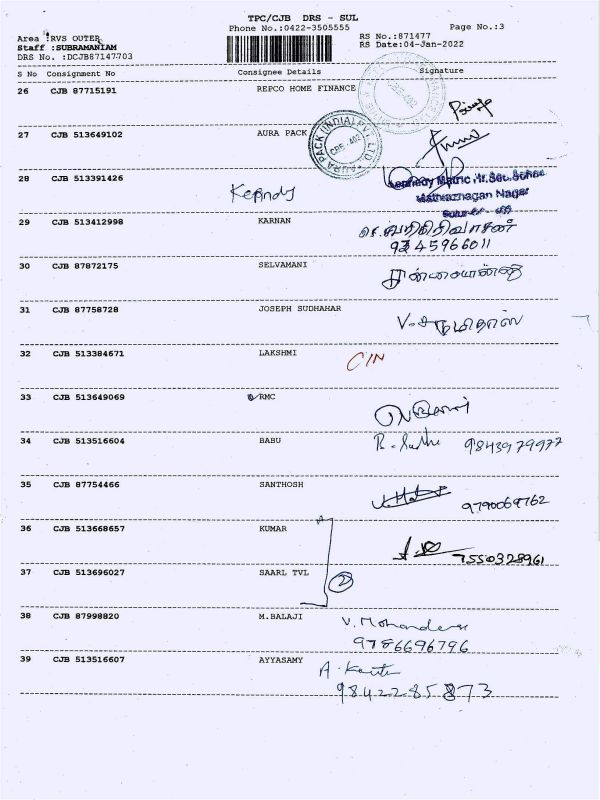 TPC/CJB DRS - SUL
Phone No.:0422-3505555 Page No.:3
Area :RVS OUTER RS No.:871477
Staff :SUBRAMANIAM RS Date:04-Jan-2022
DRS No. :DCJB87147703
S No Consignment No Consignee Details Signature
26 CJB 87715191 REPCO HOME FINANCE
27 CJB 513649102 AURA PACK
AURA PACK (INDIA) PVT. LTD
CBE - 402
28 CJB 513391426 Kennedy Matric Hr. Sec. School
Nagar
29 CJB 513412998 KARNAN
9245966011
30 CJB 87872175 SELVAMANI
31 CJB 87758728 JOSEPH SUDHAHAR
32 CJB 513384671 LAKSHMI CIN
33 CJB 513649069 RMC
34 CJB 513516604 BABU 9843979977
35 CJB 87754466 SANTHOSH 9790069762
36 CJB 513668657 KUMAR 7550328961
37 CJB 513696027 SAARL TVL 2
38 CJB 87998820 M.BALAJI
9786696796
39 CJB 513516607 AYYASAMY
9842285873